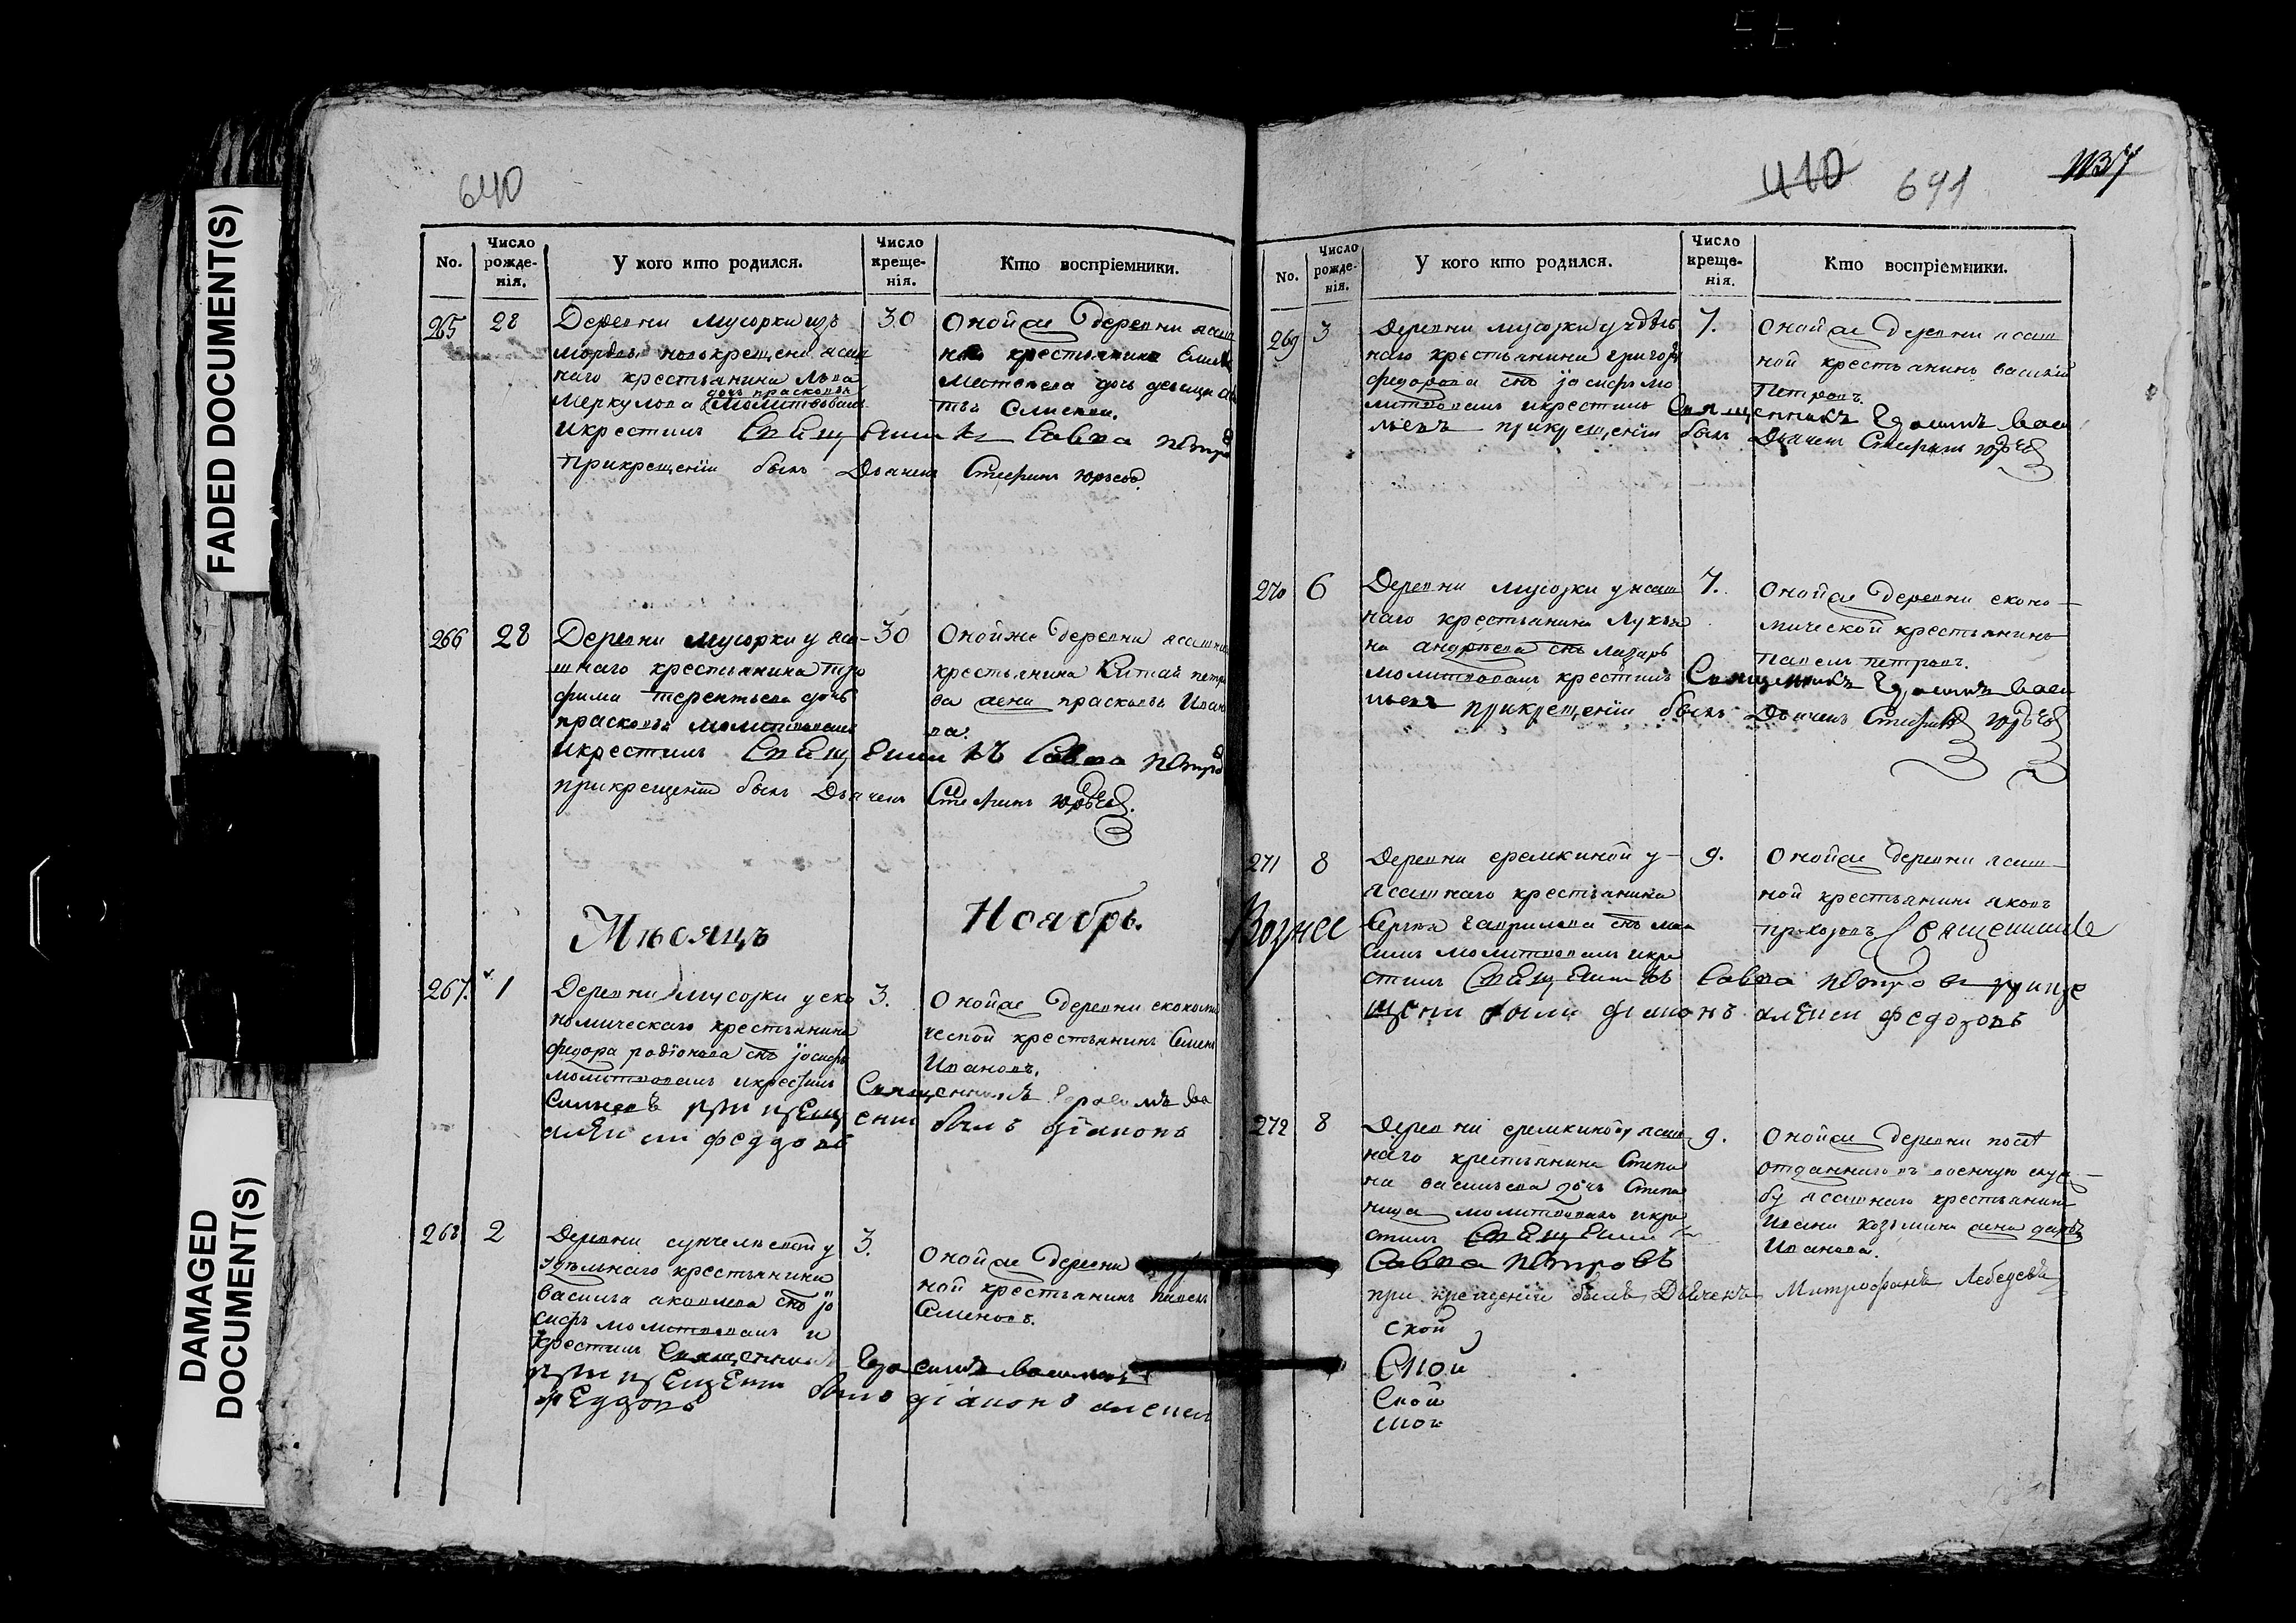 FADED DOCUMENT(S)
DAMAGED
DOCUMENT(S)
640
No.
Число
рожде-
нія.
У кого кто родился.
Число
креще-
нія.
Кто воспріемники.
265
28
Деревни Мусорки изъ
мордвъ новокрещена ясаш
наго крестьянина Льва
дочь прасковья
Меркулова молитвовалъ
и крестилъ Священникъ Савва Петро
при крещеніи былъ Дьячекъ Стефанъ Юрьев
30
Онойже деревни ясаш
крестьянина
дочь девица
266
28
Деревни Мусорки у яса-
шнаго крестьянина Тро
фима терентьева дочь
прасковья молитвовалъ
и крестилъ Священникъ Савва Петро
при крещеніи былъ Дьячекъ Стефанъ Юрьев
30
Онойже деревни ясашна
крестьянина петро
ва жена прасковья Иван
ва.
Мѣсяцъ Ноябрь.
267.
1
Деревни Мусорки у еко
номическаго крестьянина
федора родіонова снъ іосифъ
молитвовалъ и крестилъ Священникъ Ва
сильевъ при крещ ении былъ діаконъ
алексій феддоровъ
3.
Онойже деревни економи
ческой крестьянинъ Семенъ
Ивановъ.
268
2
Деревни у
удѣльнаго крестьянина
василья яковлева снъ іо
сифъ молитвовалъ и
крестилъ Священникъ Герасимъ Васильев
при крещении было діаконъ алексей
феддоровъ
3.
Онойже деревни
ной крестьянинъ павелъ
Семеновъ.
410 641 1137
No.
Число
рожде-
нія.
У кого кто родился.
Число
креще-
нія.
Кто воспріемники.
269
3
Деревни мусорки у удѣль
наго крестьянина григорья
федорова снъ іосифъ мо
литвовалъ и крестилъ Священникъ Герасимъ Васи
льевъ при крещеніи былъ Дьячекъ Стефанъ Юрьев
7.
Онойже деревни ясаш
ной крестьянинъ василій
Петровъ.
270
6
Деревни мусорки у ясаш
наго крестьянина Лукья
на андреева снъ лазарь
молитвовалъ крестилъ Священникъ Герасимъ Васи
льевъ при крещеніи былъ Дьячекъ Стефанъ Юрьев
7.
Онойже деревни еконо-
мической крестьянинъ
павелъ петровъ.
271
8
Вознес
Деревни еремкиной у
ясашнаго крестьянина
Сергея гаврилова снъ мак
симъ молитвовалъ и кре
стилъ Священникъ Савва Петровъ при кре
щении были діаконъ алексей федоровъ
9.
Онойже деревни ясаш-
ной крестьянинъ яковъ
прохоровъ Священникъ
272
8
Деревни еремкиной у ясаш
наго крестьянина Степа
на васильева дочь Степа
нида молитвовалъ и кре
стилъ Священникъ
Савва Петровъ
при крещеніи былъ Дьячекъ Митрофанъ Лебедевъ
ской
Ской
Ской
9.
Онойже деревни
отданнаго въ военную служ-
бу ясашнаго крестьянина
Ивана козьмина жена дарья
Иванова.